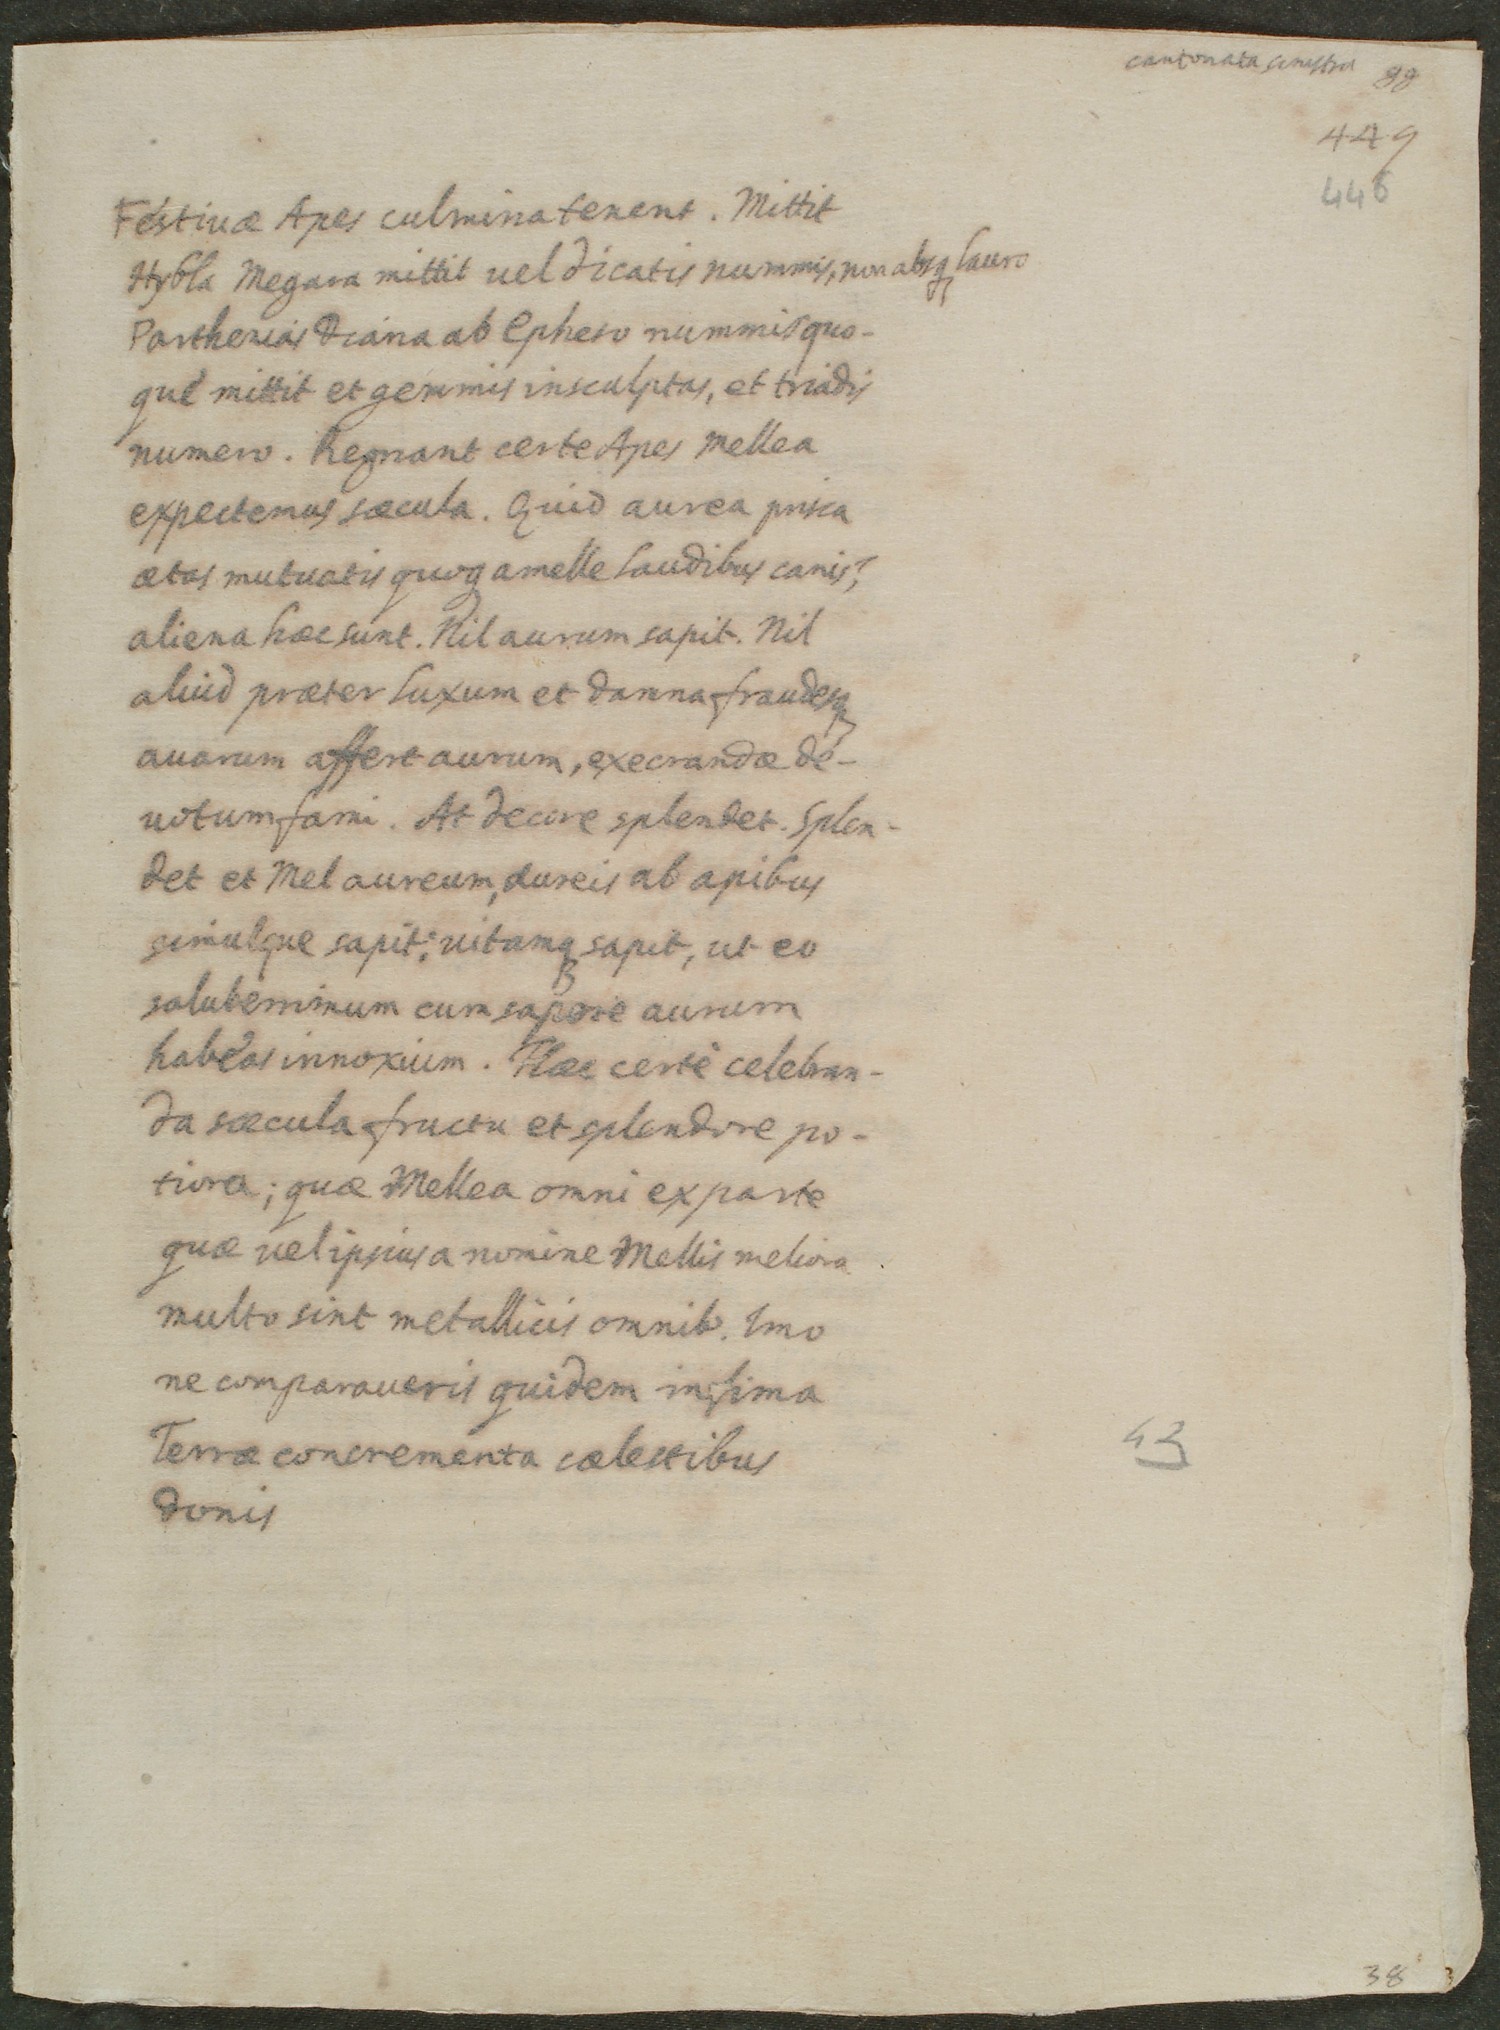 cantonata sinistra 88
449
446
Festiuæ Apes culmina tenent. Mittit
Hybla Megara mittit uel dicatis nummis, non absq lauro
Parthenias Diana ab Epheso nummis quo-
que mittit et gemmis insculptas, et triadis
numero. Regnant certe Apes Mellea
expectemus sæcula. Quid aurea prisca
ætas mutuatis quoq a melle laudibus canis?
aliena hæc sunt. Nil aurum sapit. Nil
aliud præter luxum et damna fraudesq
auarum affert aurum, execrandæ de-
uotum fami. At decore splendet. Splen-
det et Mel aureum, aureis ab apibus
simulque sapit; uitamq sapit, ut eo
saluberrimum cum sapore aurum
habeas innoxium. Hæc certè celebran-
da sæcula fructu et splendore po-
tiora; quæ Mellea omni ex parte
quæ uel ipsius a nomine Mellis meliora
multo sint metallicis omnib. Imo
ne comparaueris quidem infima
Terræ concrementa cælestibus
donis
43
38